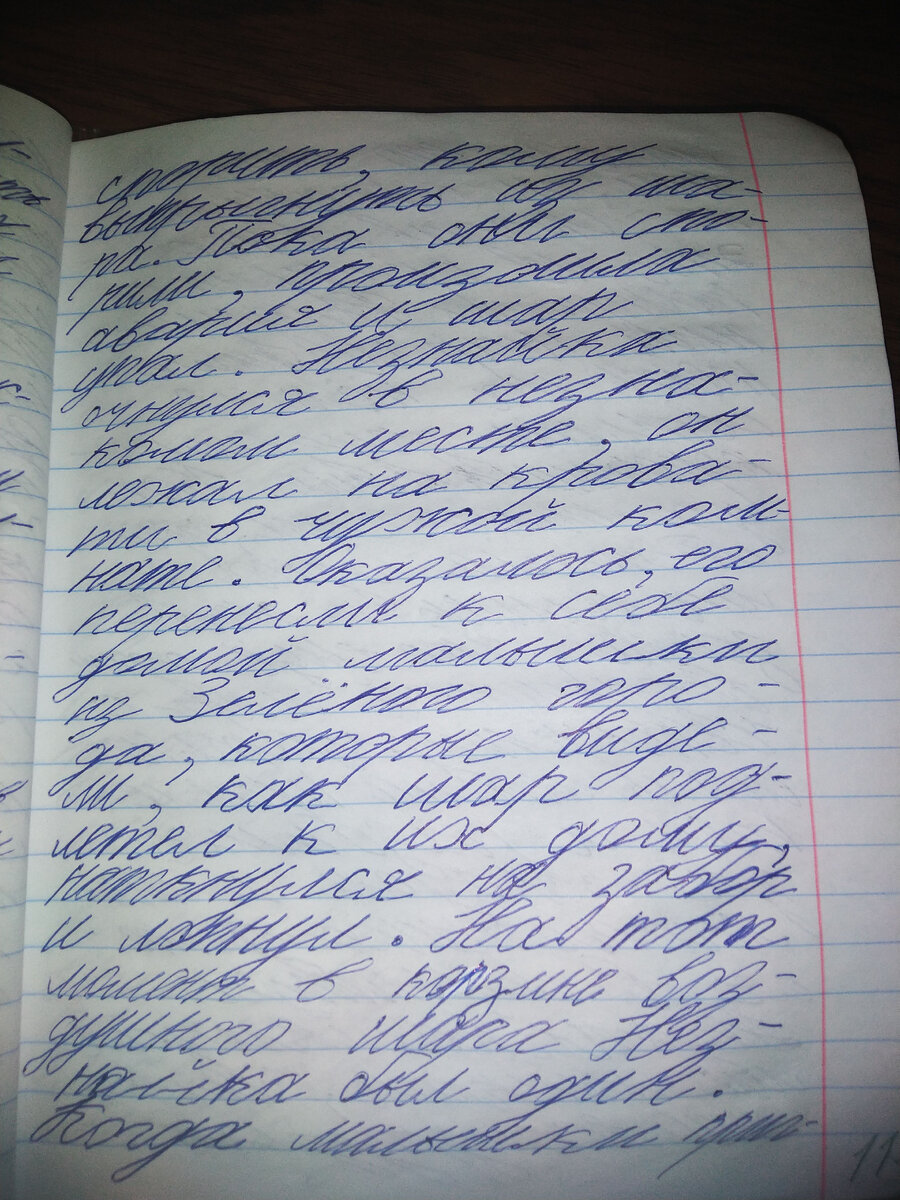 спорить, кому
выпрыгнуть из ша-
ра. Пока они спо-
рили, произошла
авария и шар
упал. Незнайка
очнулся в незна-
комом месте, он
лежал на крова-
ти в чужой ком-
нате. Оказалось, его
перенесли к себе
домой малышки
из Зелёного горо-
да, которые виде-
ли, как шар под-
летел к их дому,
наткнулся на забор
и лопнул. На тот
момент в корзине воз-
душного шара Нез-
найка был один.
Когда малышки при-